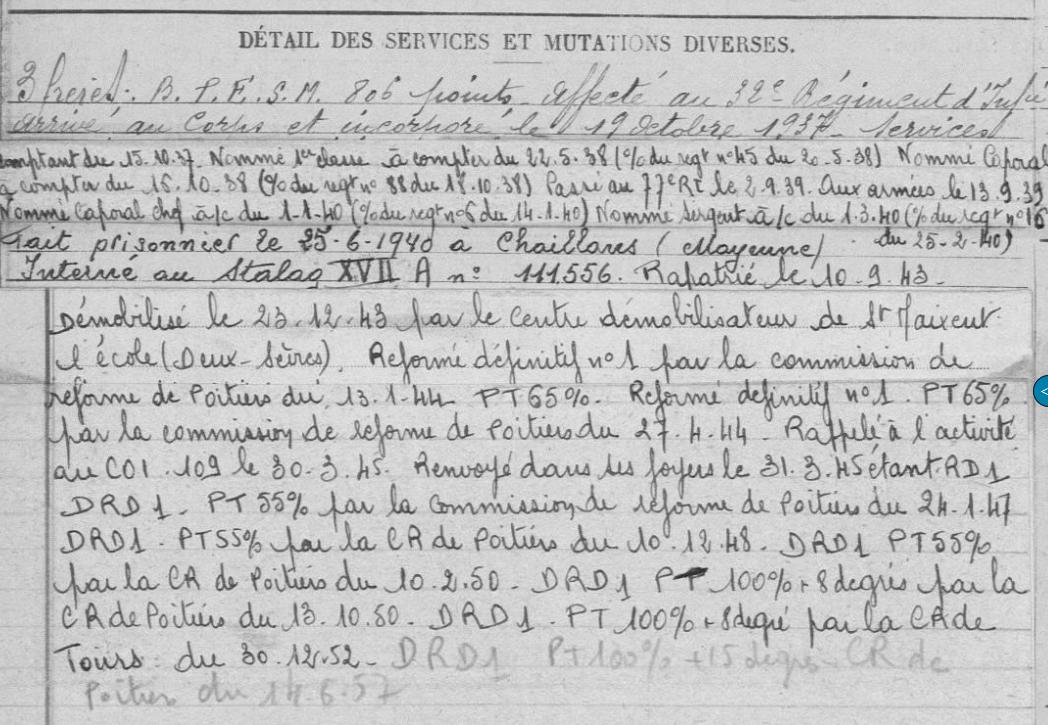 DÉTAIL DES SERVICES ET MUTATIONS DIVERSES.
3 frères. B.P.E.S.M. 806 points. Affecté au 32e Régiment d'Infie
Arrivé au Corps et incorporé le 19 Octobre 1937. Services
comptant du 15.10.37. Nommé 1ère classe à compter du 22.5.38 (% du regt n°45 du 20.5.38) Nommé Caporal
à compter du 16.10.38 (% du regt n° 88 du 18.10.38) Passé au 77e RI le 2.9.39. Aux armées le 13.9.39
Nommé Caporal chef à/c du 1-1-40 (% du regt n°6 du 14-1-40) Nommé Sergent à/c du 1.3.40 (% du regt n°16
du 25-2-40)
Fait prisonnier le 25-6-1940 à Chaillans (Mayenne)
Interné au Stalag XVII A n° 111.556. Rapatrié le 10.9.43.
Démobilisé le 23.12.43 par le Centre démobilisateur de St Maixent
l'école (Deux-Sèvres). Réformé définitif n°1 par la commission de
réforme de Poitiers du 13.1.44 PT 65%. Réformé définitif n°1. PT 65%
par la commission de réforme de Poitiers du 27.4.44. Rappelé à l'activité
au COI. 109 le 30.3.45. Renvoyé dans ses foyers le 31.3.45 étant RD1
DRD1. PT 55% par la Commission de réforme de Poitiers du 24.1.47
DRD1. PT 55% par la CR de Poitiers du 10.12.48. DRD1 PT 55%
par la CR de Poitiers du 10.2.50. DRD1 PT 100% + 8 degrés par la
CR de Poitiers du 13.10.50. DRD1. PT 100% + 8 degré par la CR de
Tours du 30.12.52. DRD1 PT 100% + 15 degrés CR de
Poitiers du 14.6.57